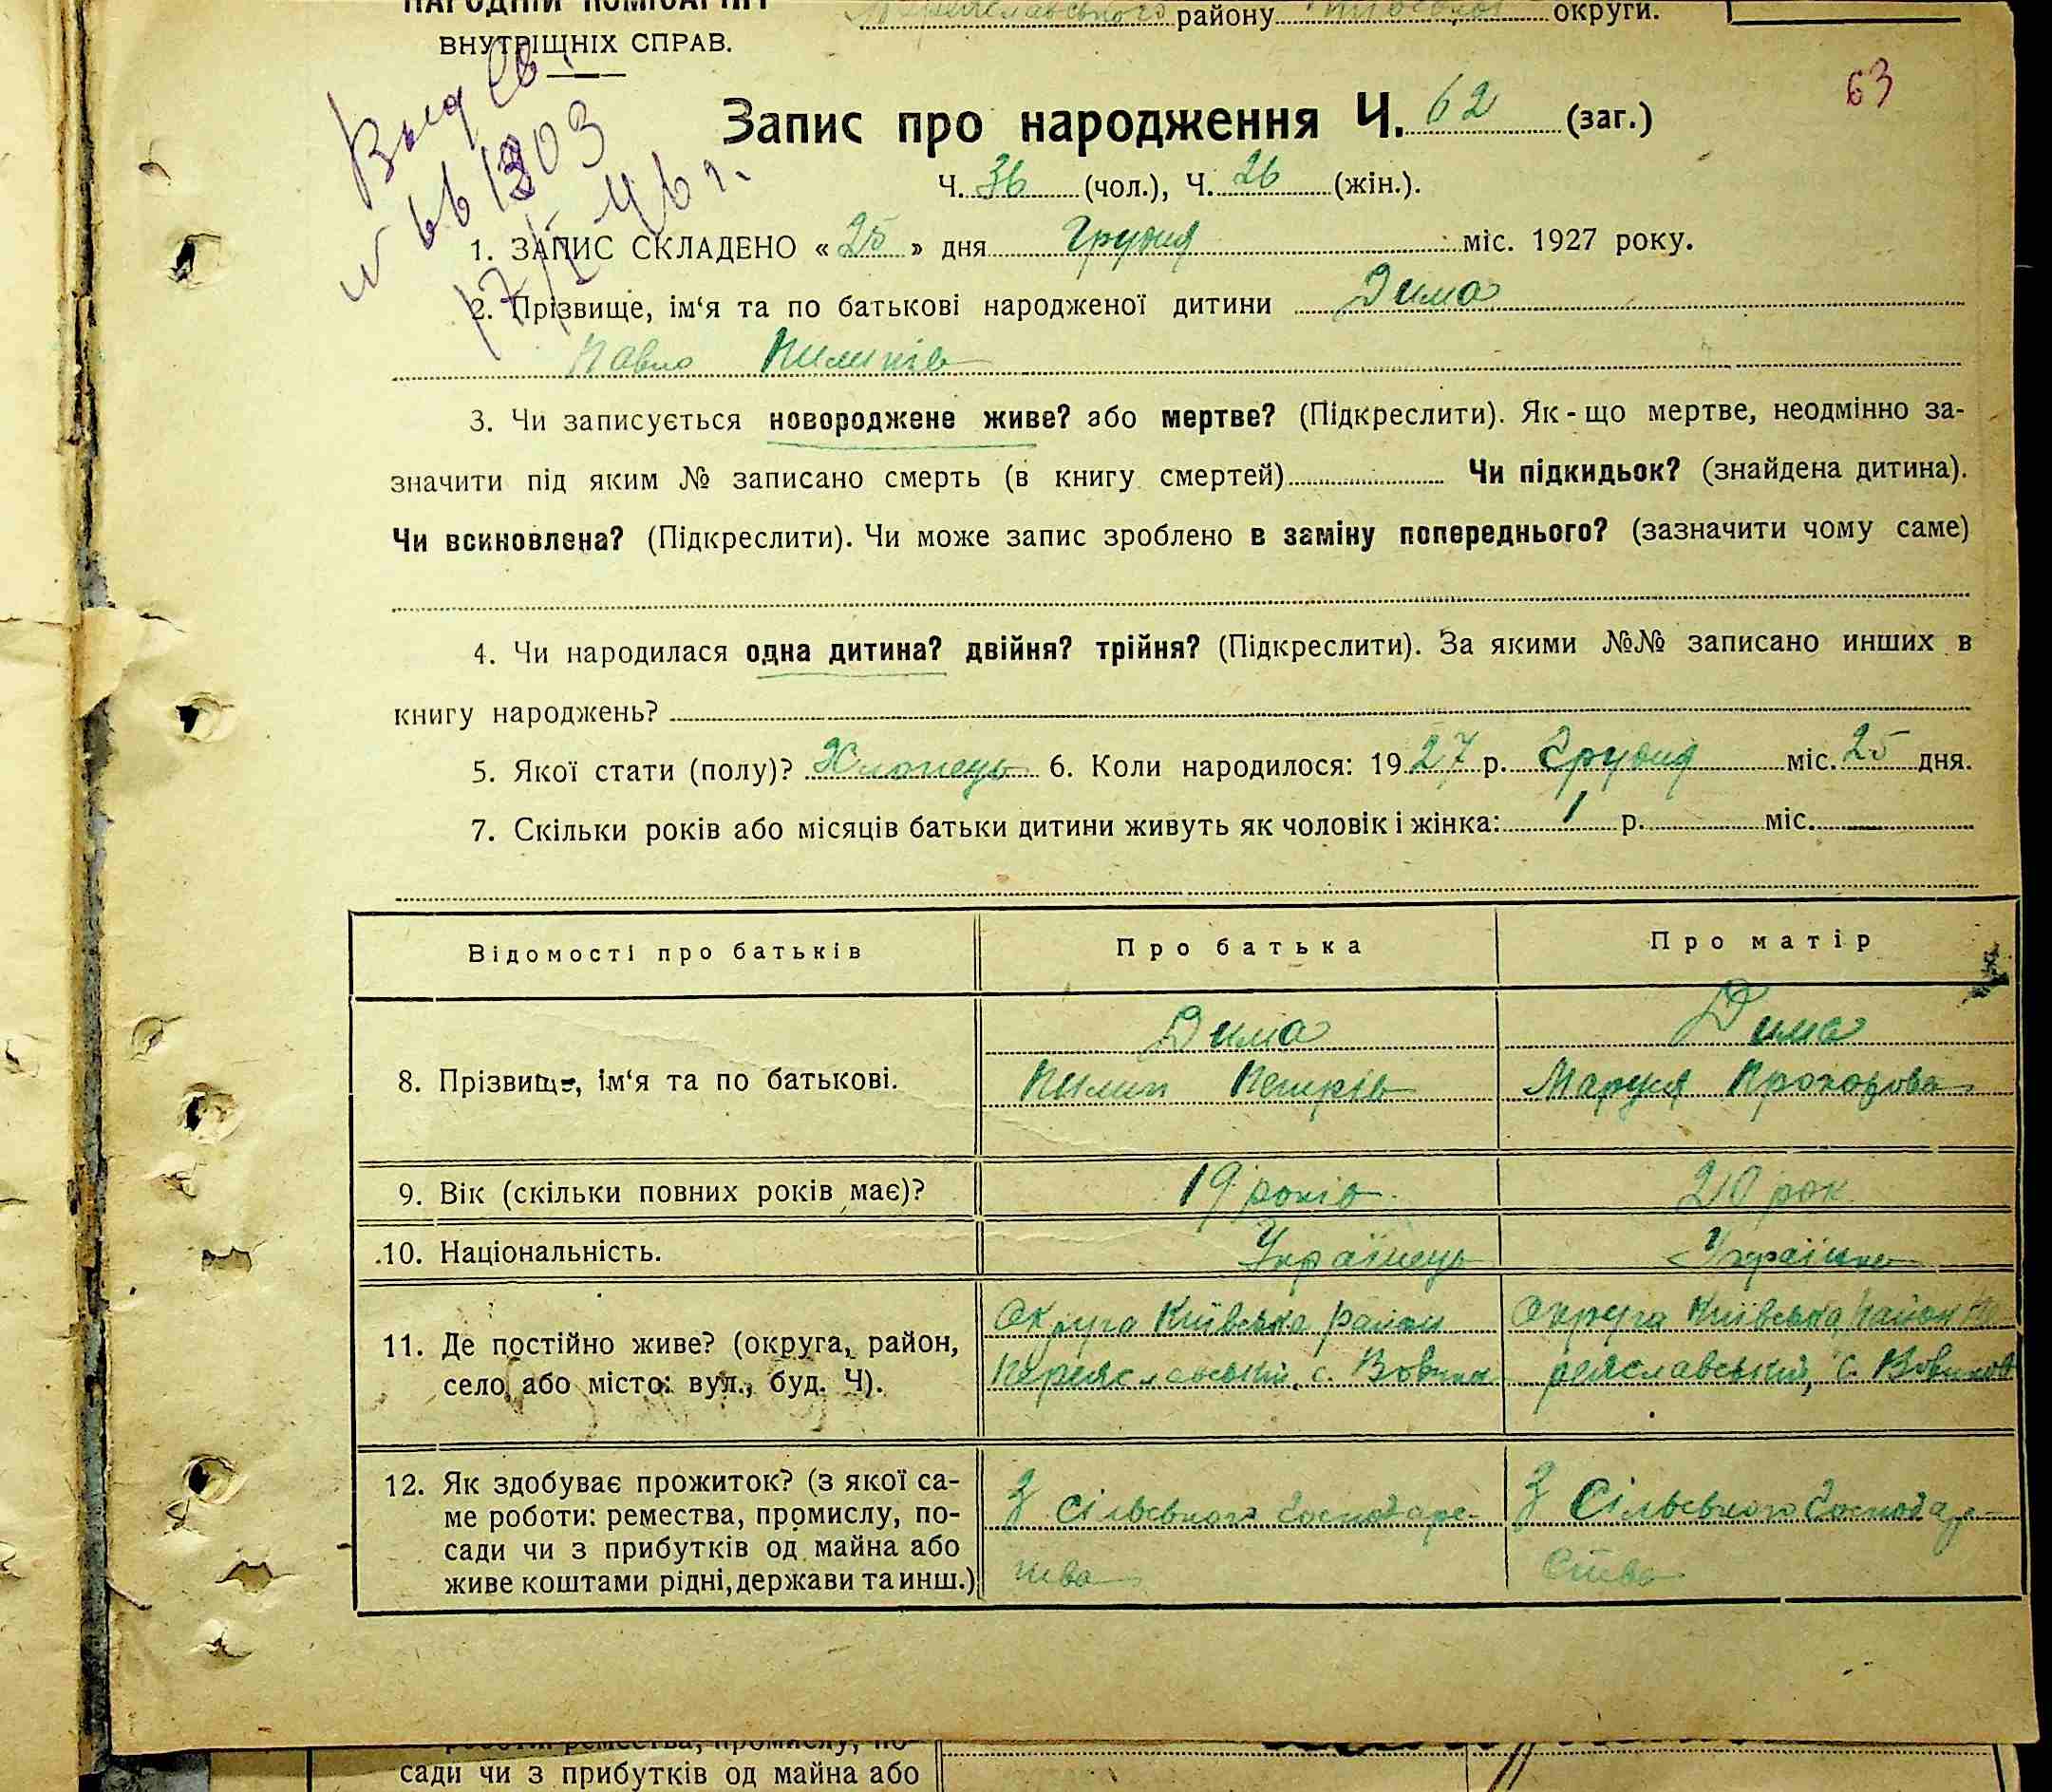 НАРОДНІЙ КОМІСАРІЯТ
ВНУТРІЩНІХ СПРАВ.
Переяславського району Київської округи.
63
Запис про народження Ч. 62 (заг.)
Ч. 36 (чол.), Ч. 26 (жін.).
1. ЗАПИС СКЛАДЕНО « 25 » дня Грудня міс. 1927 року.
2. Прізвище, ім‘я та по батькові народженої дитини Дима
Павло Пилипів
3. Чи записується новороджене живе? або мертве? (Підкреслити). Як-що мертве, неодмінно за-
значити під яким № записано смерть (в книгу смертей) Чи підкидьок? (знайдена дитина).
Чи всиновлена? (Підкреслити). Чи може запис зроблено в заміну попереднього? (зазначити чому саме)
4. Чи народилася одна дитина? двійня? трійня? (Підкреслити). За якими №№ записано инших в
книгу народжень?
5. Якої стати (полу)? Хлопець 6. Коли народилося: 1927 р. Грудня міс. 25 дня.
7. Скільки років або місяців батьки дитини живуть як чоловік і жінка: 1 р. міс.
Відомості про батьків Про батька Про матір
Дима Дима
8. Прізвище, ім‘я та по батькові. Пилип Петрів Маруся Прохорова
9. Вік (скільки повних років має)? 19 років 20 рок
10. Національність. Українець Українка
11. Де постійно живе? (округа, район, Округа Київська район Округа Київська, район Пе
село, або місто: вул., буд. Ч). Переяславський, с. Вовчков реяславський, с. Вовчков
12. Як здобуває прожиток? (з якої са-
ме роботи: ремества, промислу, по- З Сільського Господарс- З Сільського Господар-
сади чи з прибутків од майна або
живе коштами рідні, держави та инш.) тва ства
роботи: ремества, промислу, по-
сади чи з прибутків од майна або